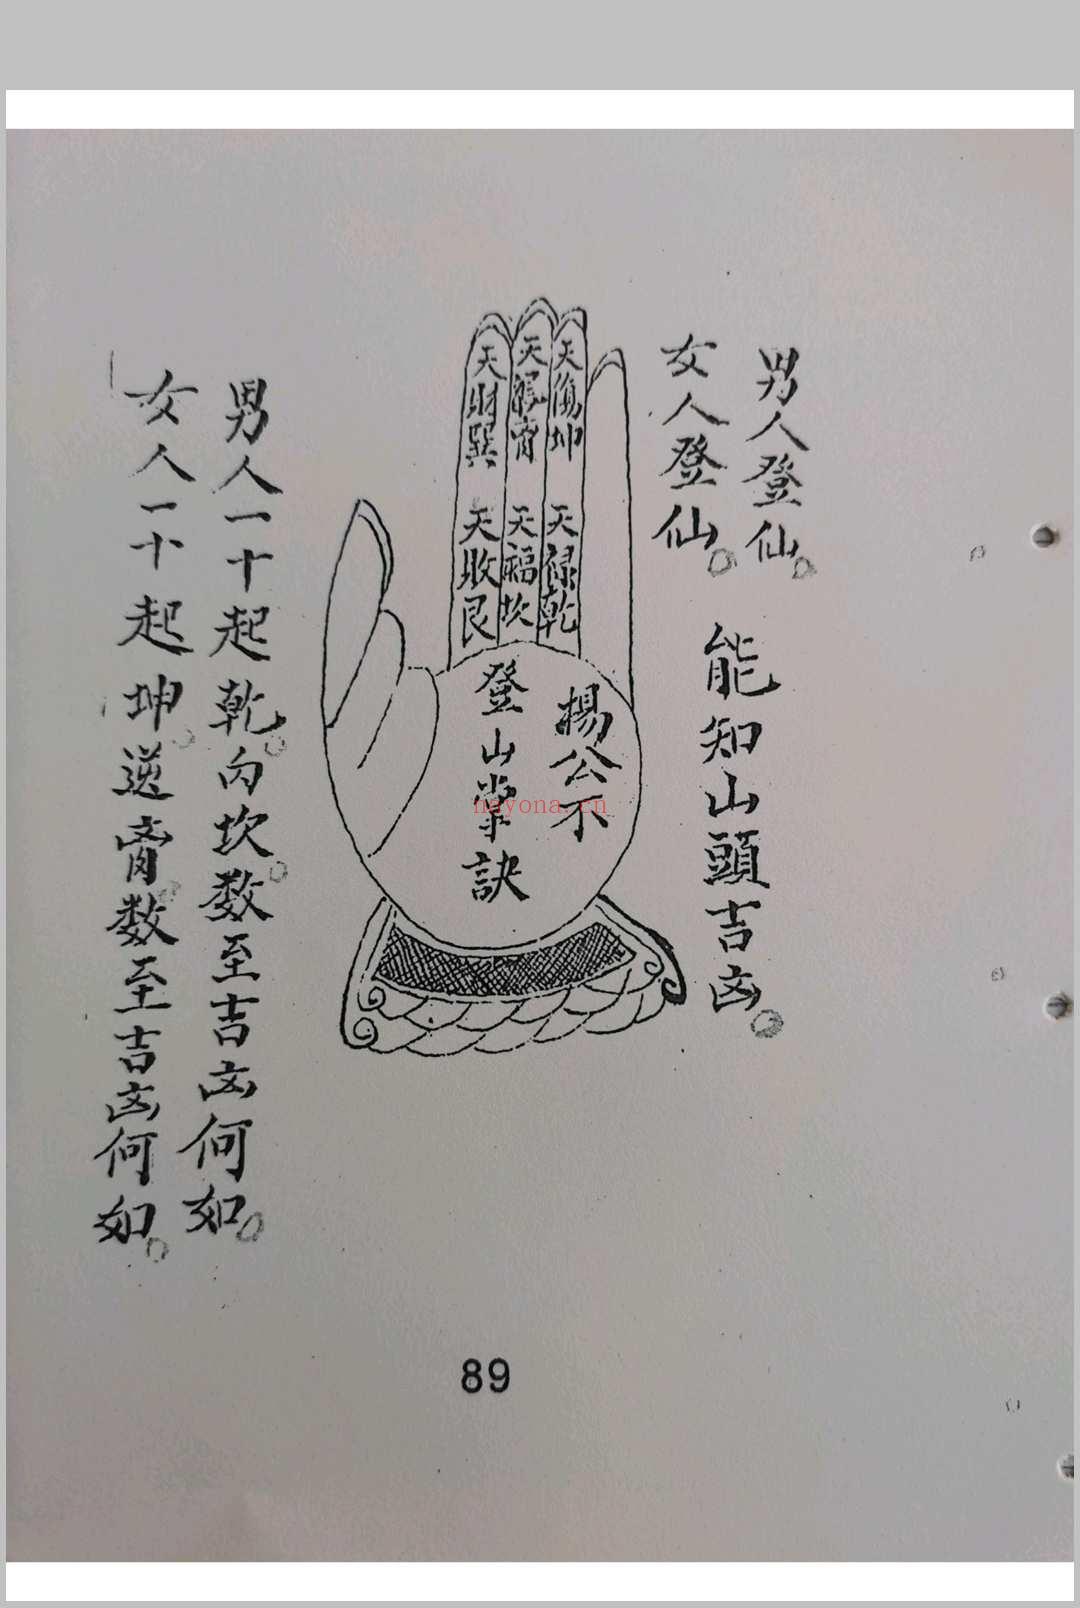 男人登仙。
女人登仙。 能知山頭吉凶。
天傷坤 天祿乾
天
天福坎
天財巽 天敗艮
楊公不
登山掌訣
男人一十起乾。向坎。数至吉凶何如。
女人一十起坤。逆 数至吉凶何如。
nayona.cn
89